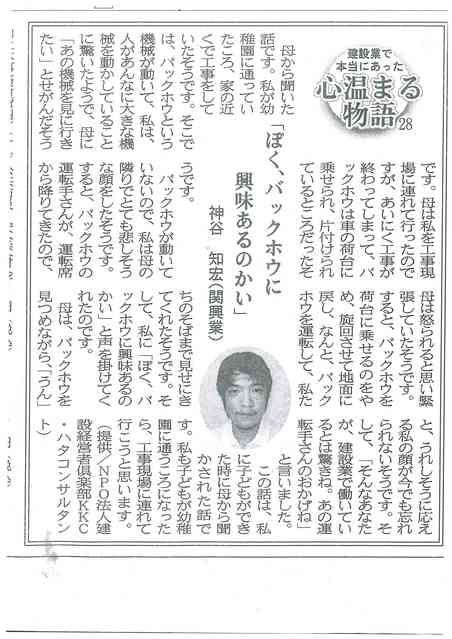 建設業で
本当にあった
心温まる
物語28
「ぼく、バックホウに
興味あるのかい」
神谷　知宏（関興業）
母から聞いた
話です。私が幼
稚園に通ってい
たころ、家の近
くで工事をして
いたそうです。そこで
は、バックホウという
機械が動いて、私は、
人があんなに大きな機
械を動かしていること
に驚いたようで、母に
「あの機械を見に行き
たい」とせがんだそう
です。母は私を工事現
場に連れて行ったので
すが、あいにく工事が
終わってしまって、バ
ックホウは車の荷台に
乗せられ、片付けられ
ているところだったそ
うです。
バックホウが動いて
いないので、私は母の
隣りでとても悲しそう
な顔をしたそうです。
すると、バックホウの
運転手さんが、運転席
から降りてきたので、
母は怒られると思い緊
張していたそうです。
すると、バックホウを
荷台に乗せるのをや
め、旋回させて地面に
戻し、なんと、バック
ホウを運転して、私た
ちのそばまで見せにき
てくれたそうです。そ
して、私に「ぼく、バ
ックホウに興味あるの
かい」と声を掛けてく
れたのです。
母は、バックホウを
見つめながら、「うん」
と、うれしそうに応え
る私の顔が今でも忘れ
られないそうです。そ
して、「そんなあなた
が、建設業で働いてい
るとは驚きね。あの運
転手さんのおかげね」
と言いました。
この話は、私
に子どもができ
た時に母から聞
かされた話で
す。私も子どもが幼稚
園に通うころになった
ら、工事現場に連れて
行こうと思います。
（提供／NPO法人建
設経営者倶楽部KKC
・ハタコンサルタン
ト）